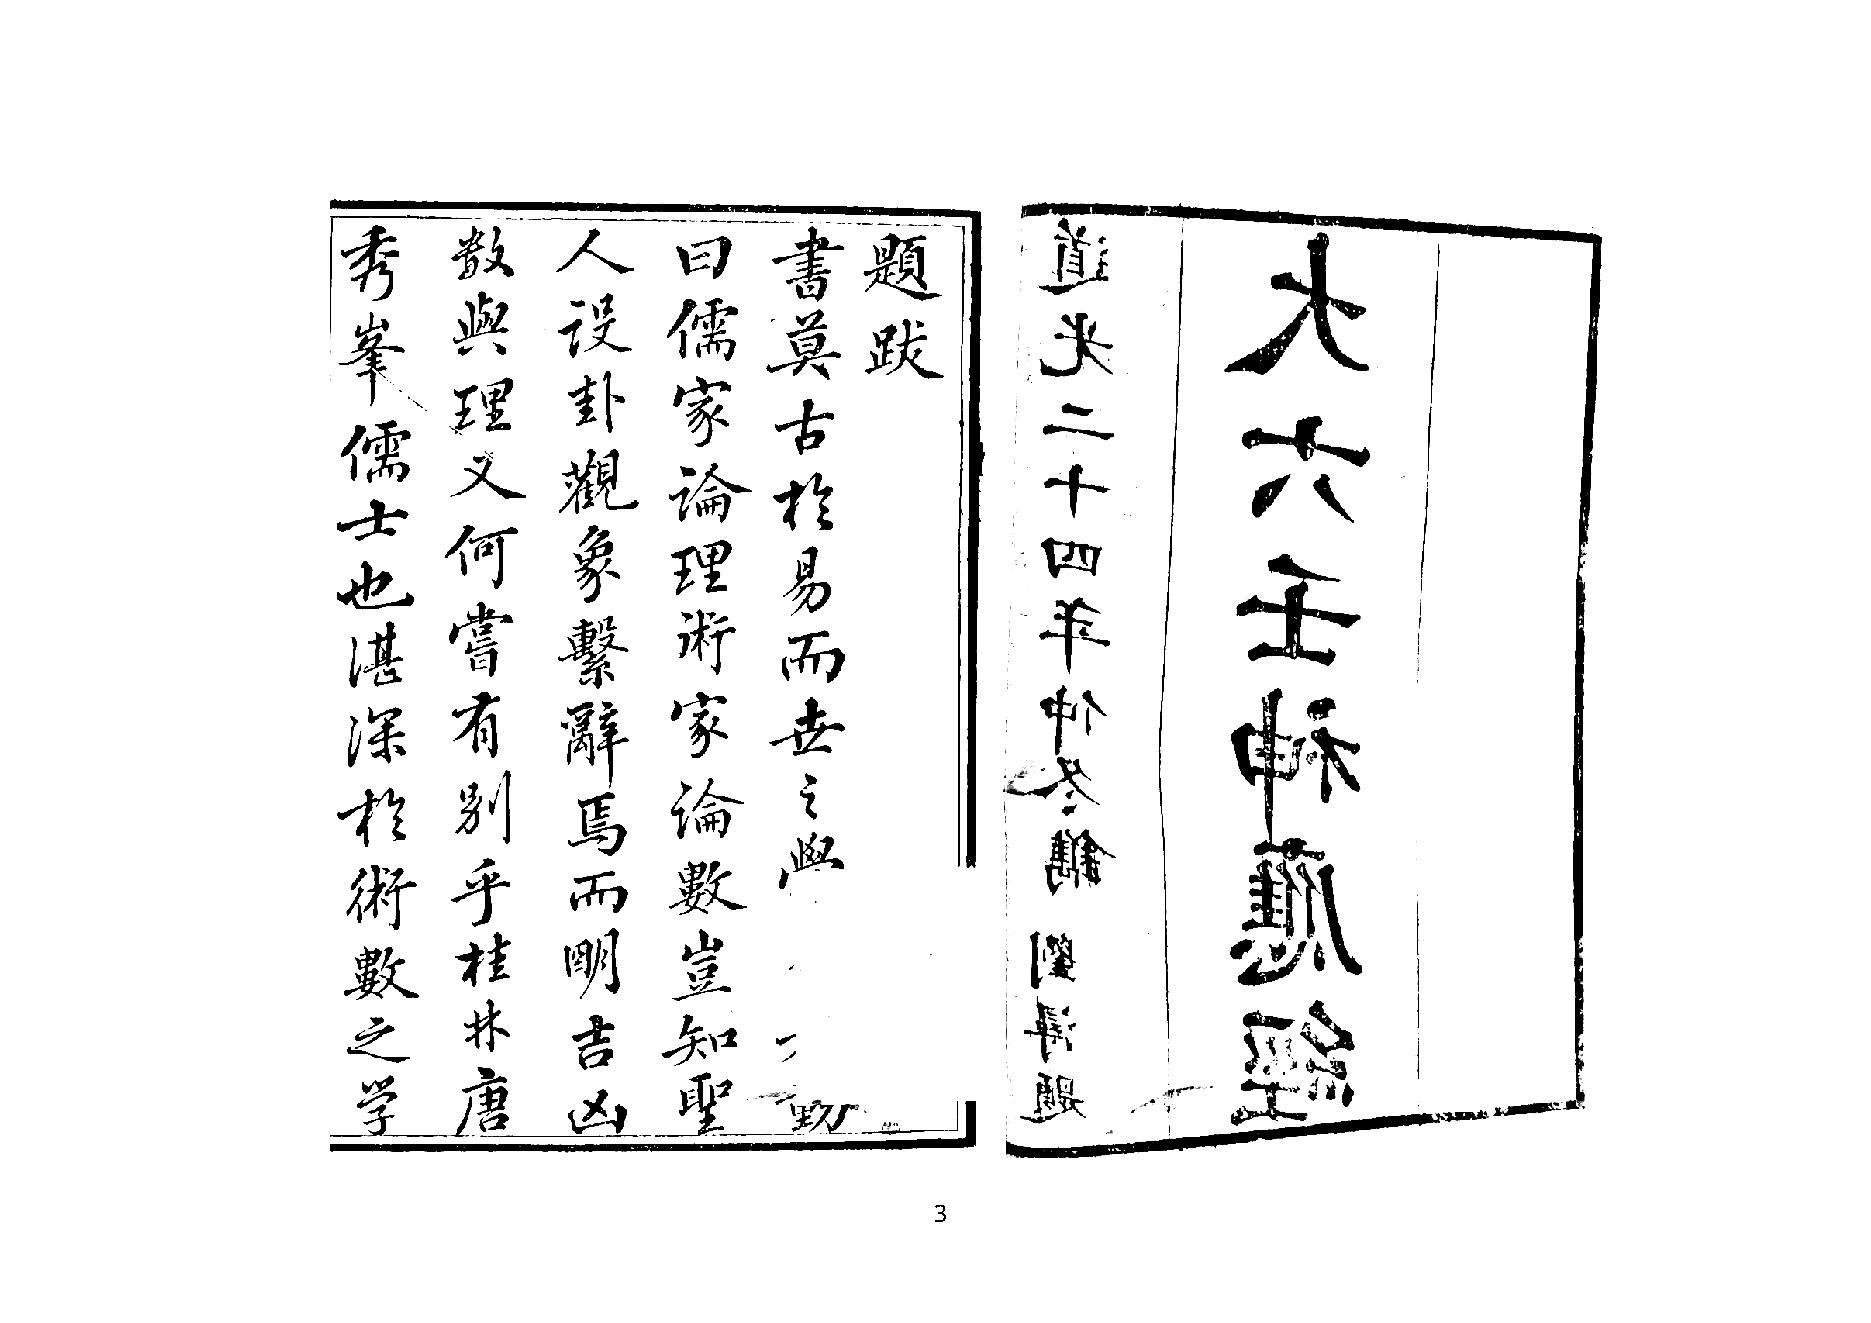 大六壬神應經
道光二十四年仲冬鐫
劉潯題
題跋
書莫古於易而世之與 勁
曰儒家論理術家論數豈知聖
人設卦觀象繫辭焉而明吉凶
数與理又何嘗有别乎桂林唐
秀峯儒士也湛深於術數之学
3